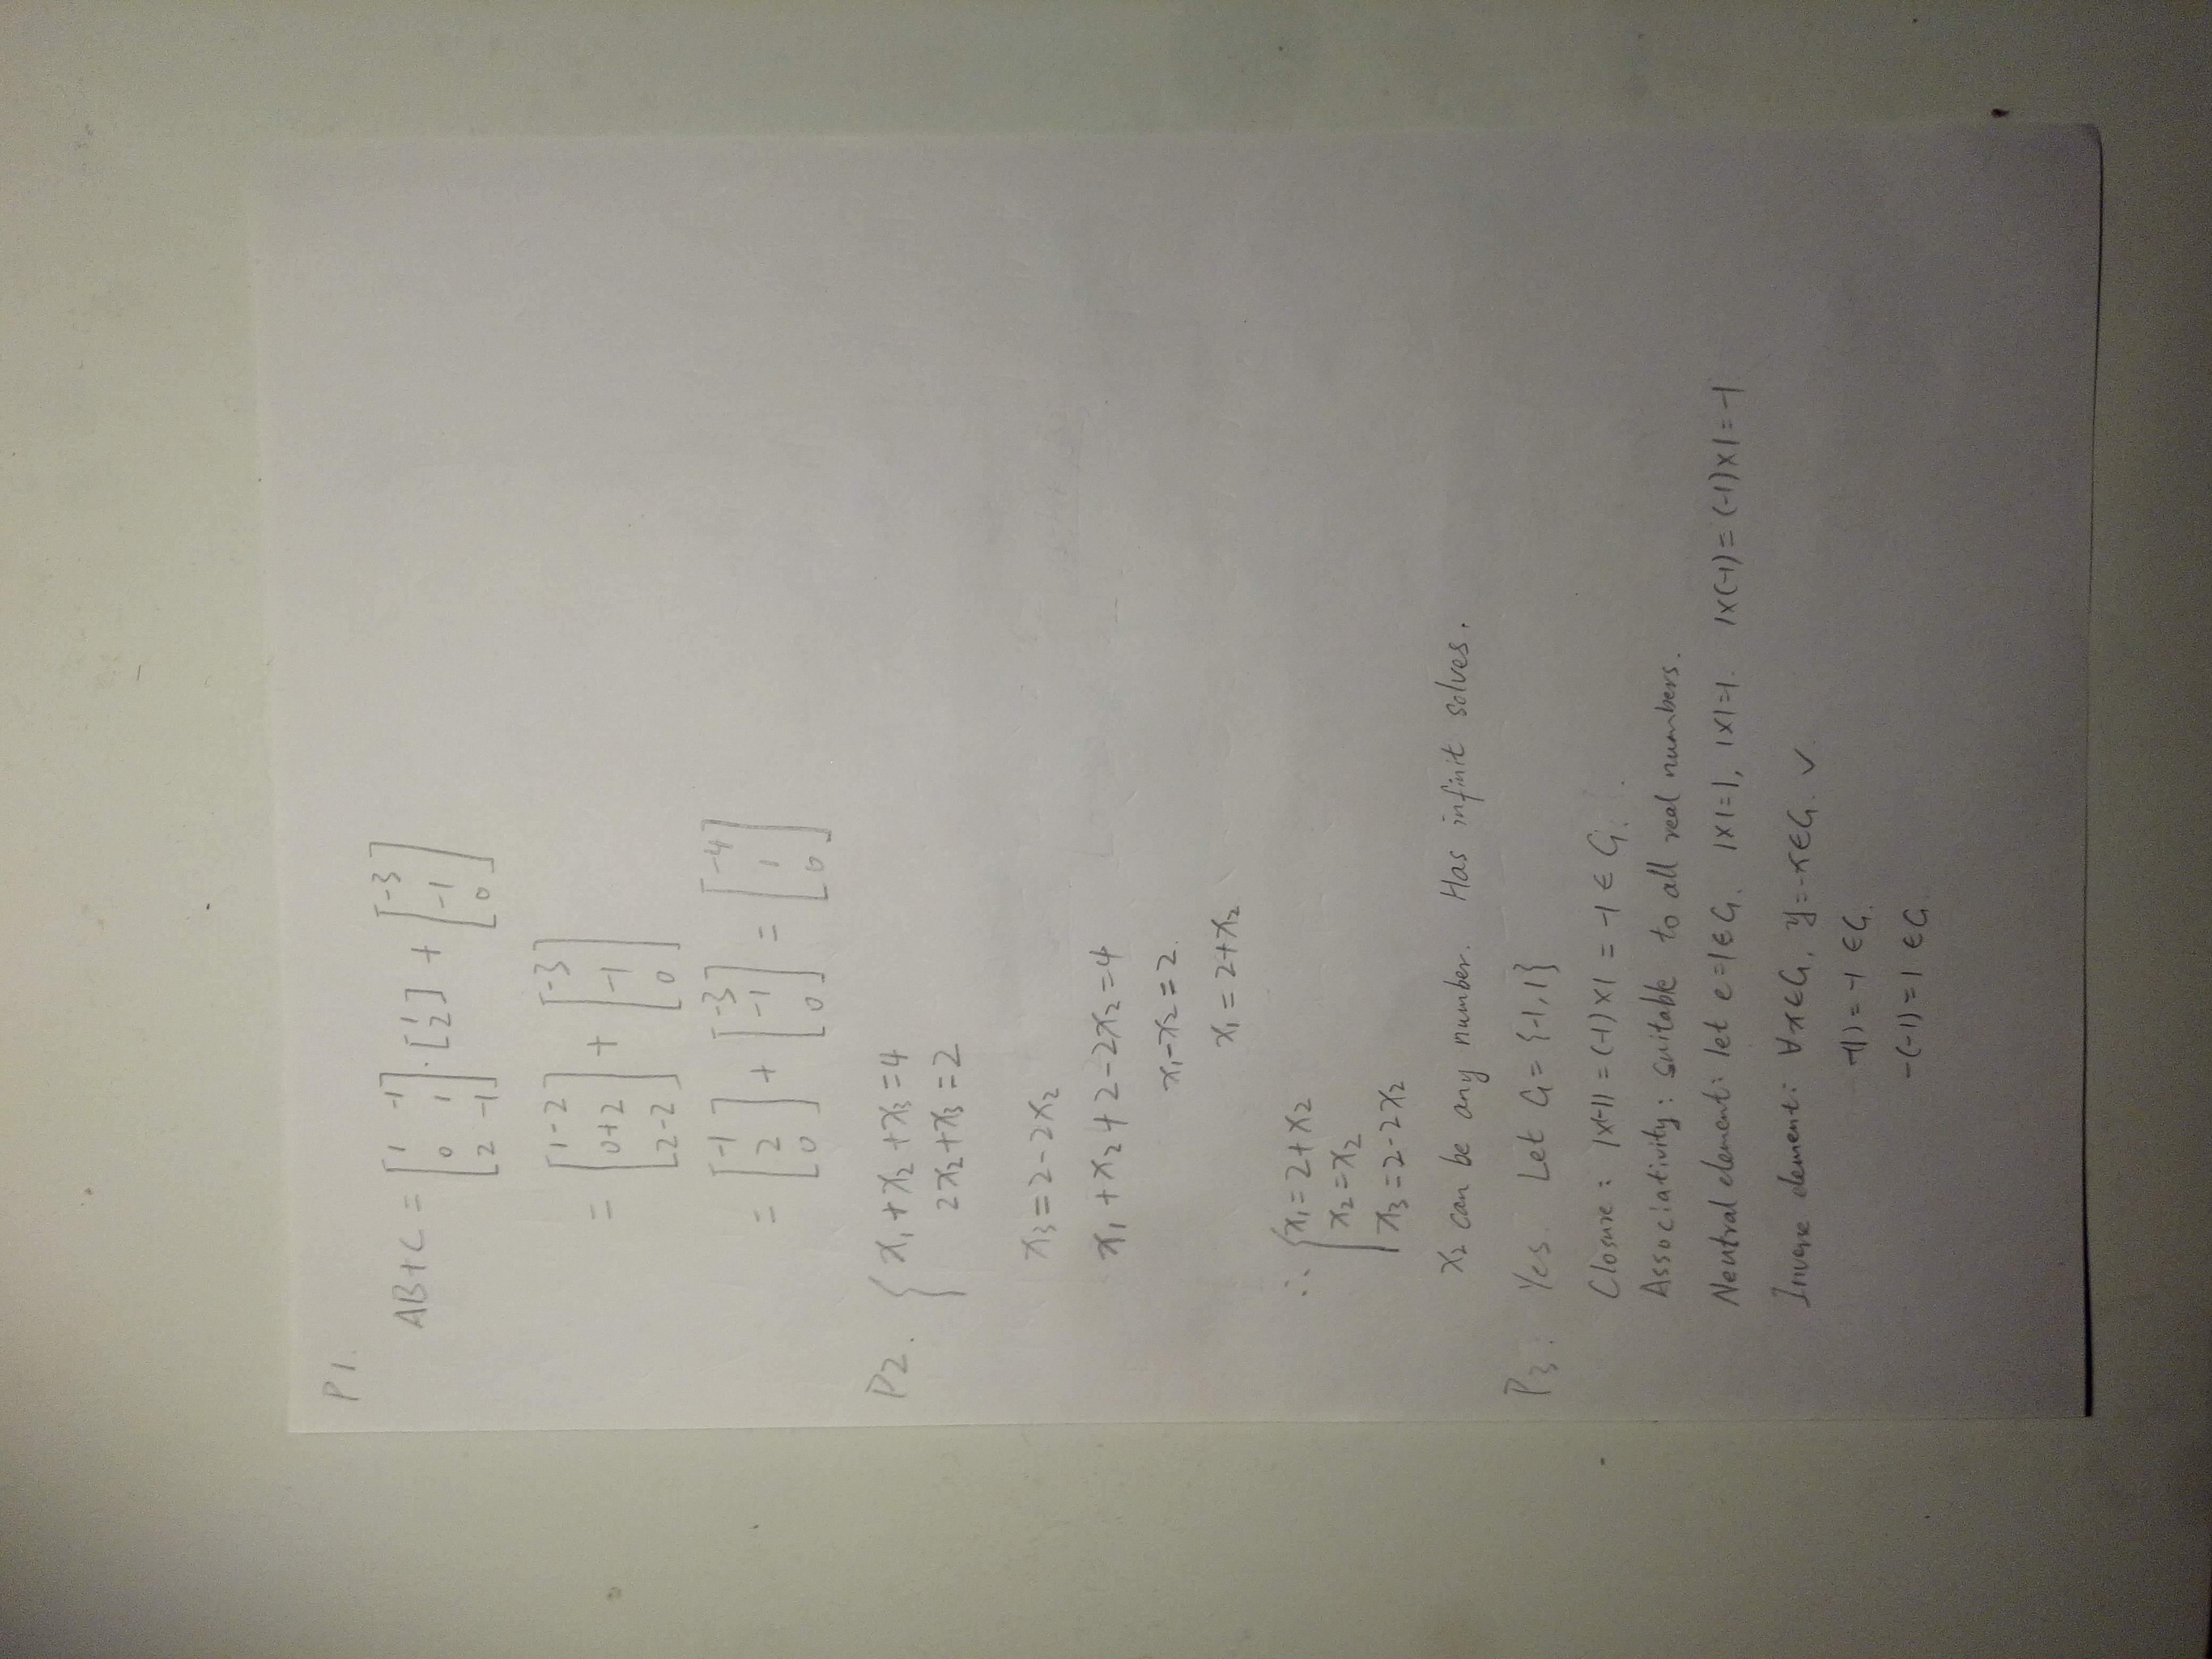 P1.
AB+C = [1 -1; 0 1; 2 -1]·[1; 2] + [-3; -1; 0]
= [1-2; 0+2; 2-2] + [-3; -1; 0]
= [-1; 2; 0] + [-3; -1; 0] = [-4; 1; 0]
P2. { x₁+x₂+x₃=4
2x₂+x₃=2
x₃=2-2x₂
x₁+x₂+2-2x₂=4
x₁-x₂=2.
x₁=2+x₂
∴ { x₁=2+x₂
x₂=x₂
x₃=2-2x₂
x₂ can be any number. Has infinit solves.
P3. Yes. Let G={-1,1}
Closure: 1×(-1)=(-1)×1=-1∈G.
Associativity: suitable to all real numbers.
Neutral element: let e=1∈G. 1×1=1, 1×1=1. 1×(-1)=(-1)×1=-1
Inverse element: ∀x∈G, y=-x∈G. ✓
-(1)=-1∈G.
-(-1)=1∈G